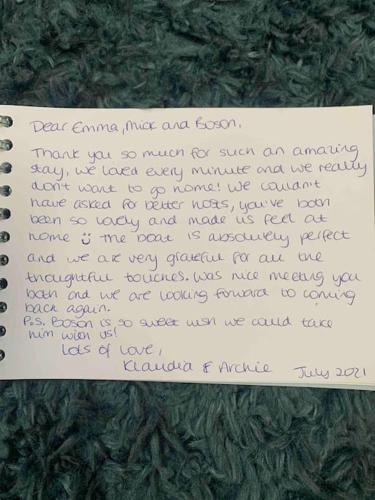 Dear Emma, Mick and Boson,
Thank you so much for such an amazing
stay, we loved every minute and we really
don't want to go home! We couldn't
have asked for better hosts, you've both
been so lovely and made us feel at
home :) The boat is absolutely perfect
and we are very grateful for all the
thoughtful touches. Was nice meeting you
both and we are looking forward to coming
back again.
P.S. Boson is so sweet wish we could take
him with us!
Lots of love,
Klaudia & Archie July 2021